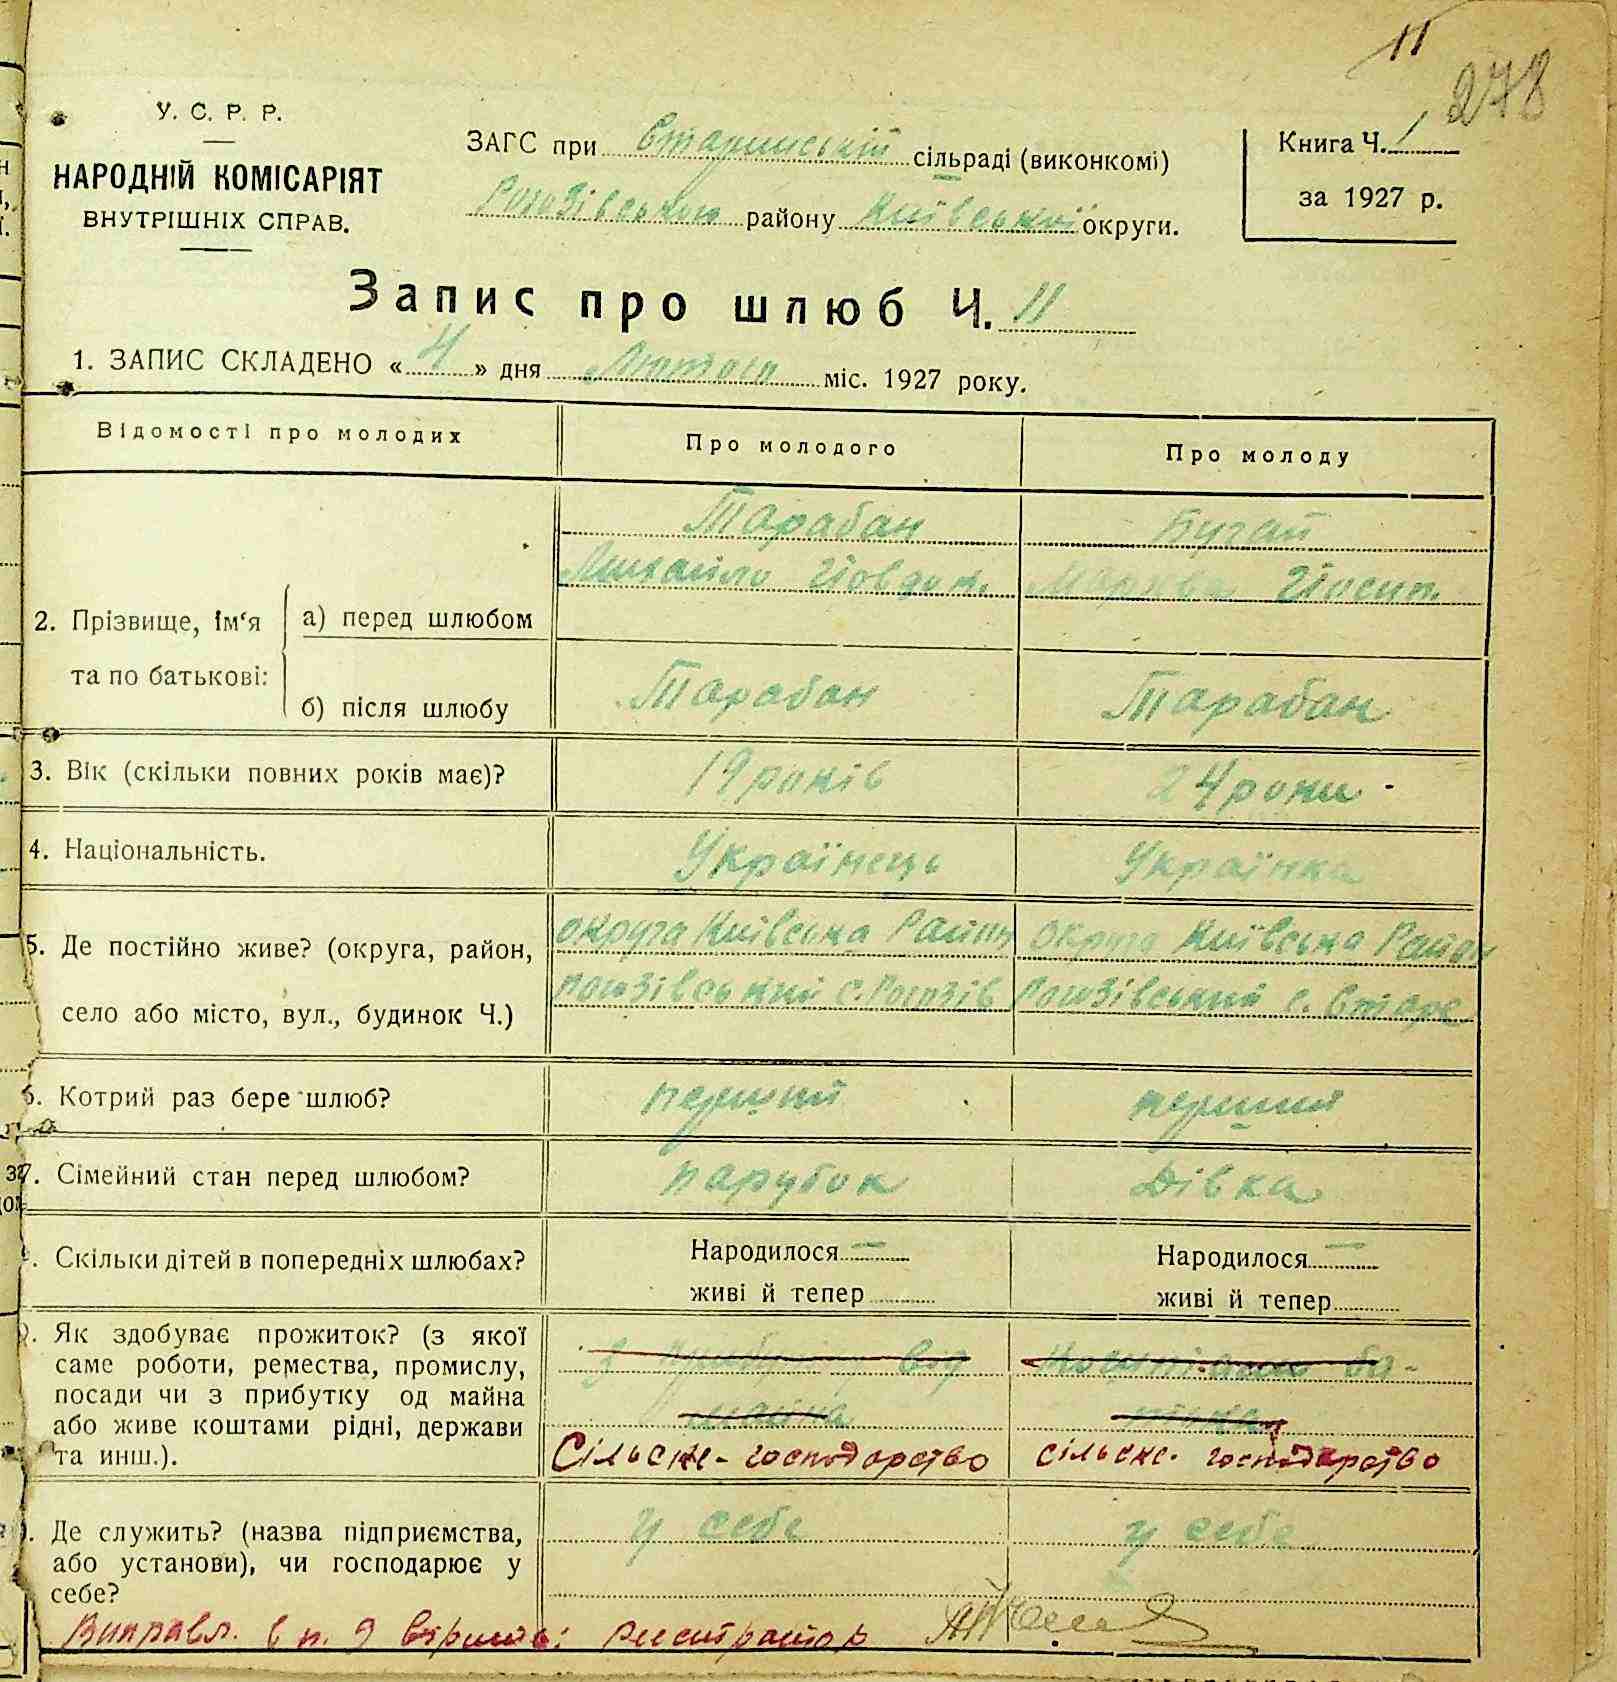 11
278
У. С. Р. Р.
НАРОДНІЙ КОМІСАРІЯТ
ВНУТРІШНІХ СПРАВ.
ЗАГС при Старинській сільраді (виконкомі)
Рогозівського району Київської округи.
Книга Ч. 1
за 1927 р.
Запис про шлюб Ч. 11
1. ЗАПИС СКЛАДЕНО « 4 » дня Лютого міс. 1927 року.
Відомості про молодих Про молодого Про молоду
Тарабан Бугай
Михайло Йовдок. Йосип.
2. Прізвище, ім‘я а) перед шлюбом
та по батькові:
б) після шлюбу Тарабан Тарабан
3. Вік (скільки повних років має)? 19 років 24 роки
4. Національність. Українець Українка
5. Де постійно живе? (округа, район, округа Київська Район округа Київська Район
село або місто, вул., будинок Ч.) Рогозівський с. Рогозів Рогозівський с. Старе
6. Котрий раз бере шлюб? перший перший
7. Сімейний стан перед шлюбом? парубок Дівка
. Скільки дітей в попередніх шлюбах? Народилося — Народилося —
живі й тепер живі й тепер
. Як здобуває прожиток? (з якої
саме роботи, ремества, промислу, з від ба-
посади чи з прибутку од майна
або живе коштами рідні, держави майна тька
та инш.). Сільске-господарство сільске. господарство
. Де служить? (назва підприємства, у себе у себе
або установи), чи господарює у
себе?
Виправл. в п. 9 вірить: реєстратор